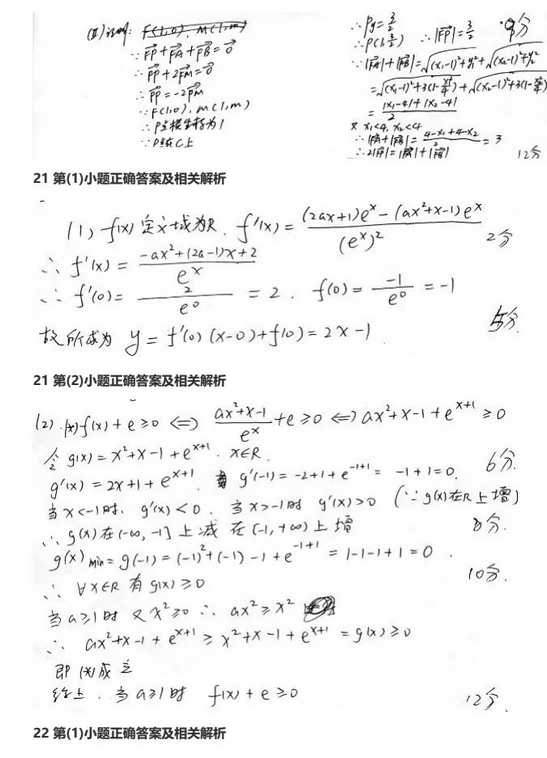 (Ⅱ)证明: F(1,0), M(1,m)
∵ FP+FA+FB=0
∴ FP+2FM=0
∴ FP=-2FM
∵ F(1,0), M(1,m)
∴ P点横坐标为1
∵ P点在C上
∴ |FP|=3/2 9分
=3
∴ 2|FP|=|FA|+|FB| 12分
21 第(1)小题正确答案及相关解析
(1) f(x) 定义域为R. f'(x)=((2ax+1)e^x-(ax²+x-1)e^x)/(e^x)² 2分
∴ f'(x)=(-ax²+(2a-1)x+2)/e^x
∴ f'(0)=2/e⁰=2. f(0)=-1/e⁰=-1
故所求为 y=f'(0)(x-0)+f(0)=2x-1. 5分
21 第(2)小题正确答案及相关解析
(2). f(x)+e≥0 ⇔ (ax²+x-1)/e^x+e≥0 ⇔ ax²+x-1+e^(x+1)≥0
令 g(x)=x²+x-1+e^(x+1). x∈R.
g'(x)=2x+1+e^(x+1). g'(-1)=-2+1+e^(-1+1)=-1+1=0. 6分
当 x<-1时, g'(x)<0. 当 x>-1时 g'(x)>0 (∵ g'(x)在R上增)
∴ g(x)在(-∞,-1]上减 在(-1,+∞)上增 8分.
g(x)min=g(-1)=(-1)²+(-1)-1+e^(-1+1)=1-1-1+1=0.
∴ ∀x∈R 有 g(x)≥0 10分.
当 a≥1时 又 x²≥0 ∴ ax²≥x²
∴ ax²+x-1+e^(x+1)≥x²+x-1+e^(x+1)=g(x)≥0
即 (*)成立
综上. 当 a≥1时 f(x)+e≥0 12分.
22 第(1)小题正确答案及相关解析